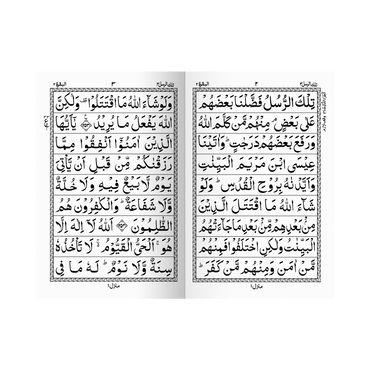 تلك الرسل ٣ ٢ البقرة ٢
تِلْكَ الرُّسُلُ فَضَّلْنَا بَعْضَهُمْ
عَلٰى بَعْضٍ ۘ مِنْهُمْ مَّنْ كَلَّمَ اللّٰهُ
وَرَفَعَ بَعْضَهُمْ دَرَجٰتٍ ؕ وَاٰتَيْنَا
عِيْسَى ابْنَ مَرْيَمَ الْبَيِّنٰتِ
وَاَيَّدْنٰهُ بِرُوْحِ الْقُدُسِ ؕ وَلَوْ
شَآءَ اللّٰهُ مَا اقْتَتَلَ الَّذِيْنَ
مِنْۢ بَعْدِهِمْ مِّنْۢ بَعْدِ مَا جَآءَتْهُمُ
الْبَيِّنٰتُ وَلٰكِنِ اخْتَلَفُوْا فَمِنْهُمْ
مَّنْ اٰمَنَ وَمِنْهُمْ مَّنْ كَفَرَ ؕ
منزل ١
تلك الرسل ٣ ٣ البقرة ٢
وَلَوْ شَآءَ اللّٰهُ مَا اقْتَتَلُوْا ۟ وَلٰكِنَّ
اللّٰهَ يَفْعَلُ مَا يُرِيْدُ ۝ يٰۤاَيُّهَا
الَّذِيْنَ اٰمَنُوْۤا اَنْفِقُوْا مِمَّا
رَزَقْنٰكُمْ مِّنْ قَبْلِ اَنْ يَّاْتِيَ
يَوْمٌ لَّا بَيْعٌ فِيْهِ وَلَا خُلَّةٌ
وَّلَا شَفَاعَةٌ ؕ وَالْكٰفِرُوْنَ هُمُ
الظّٰلِمُوْنَ ۝ اَللّٰهُ لَاۤ اِلٰهَ اِلَّا
هُوَ ۚ اَلْحَيُّ الْقَيُّوْمُ ۚ لَا تَاْخُذُهٗ
سِنَةٌ وَّلَا نَوْمٌ ؕ لَهٗ مَا فِى
منزل ١